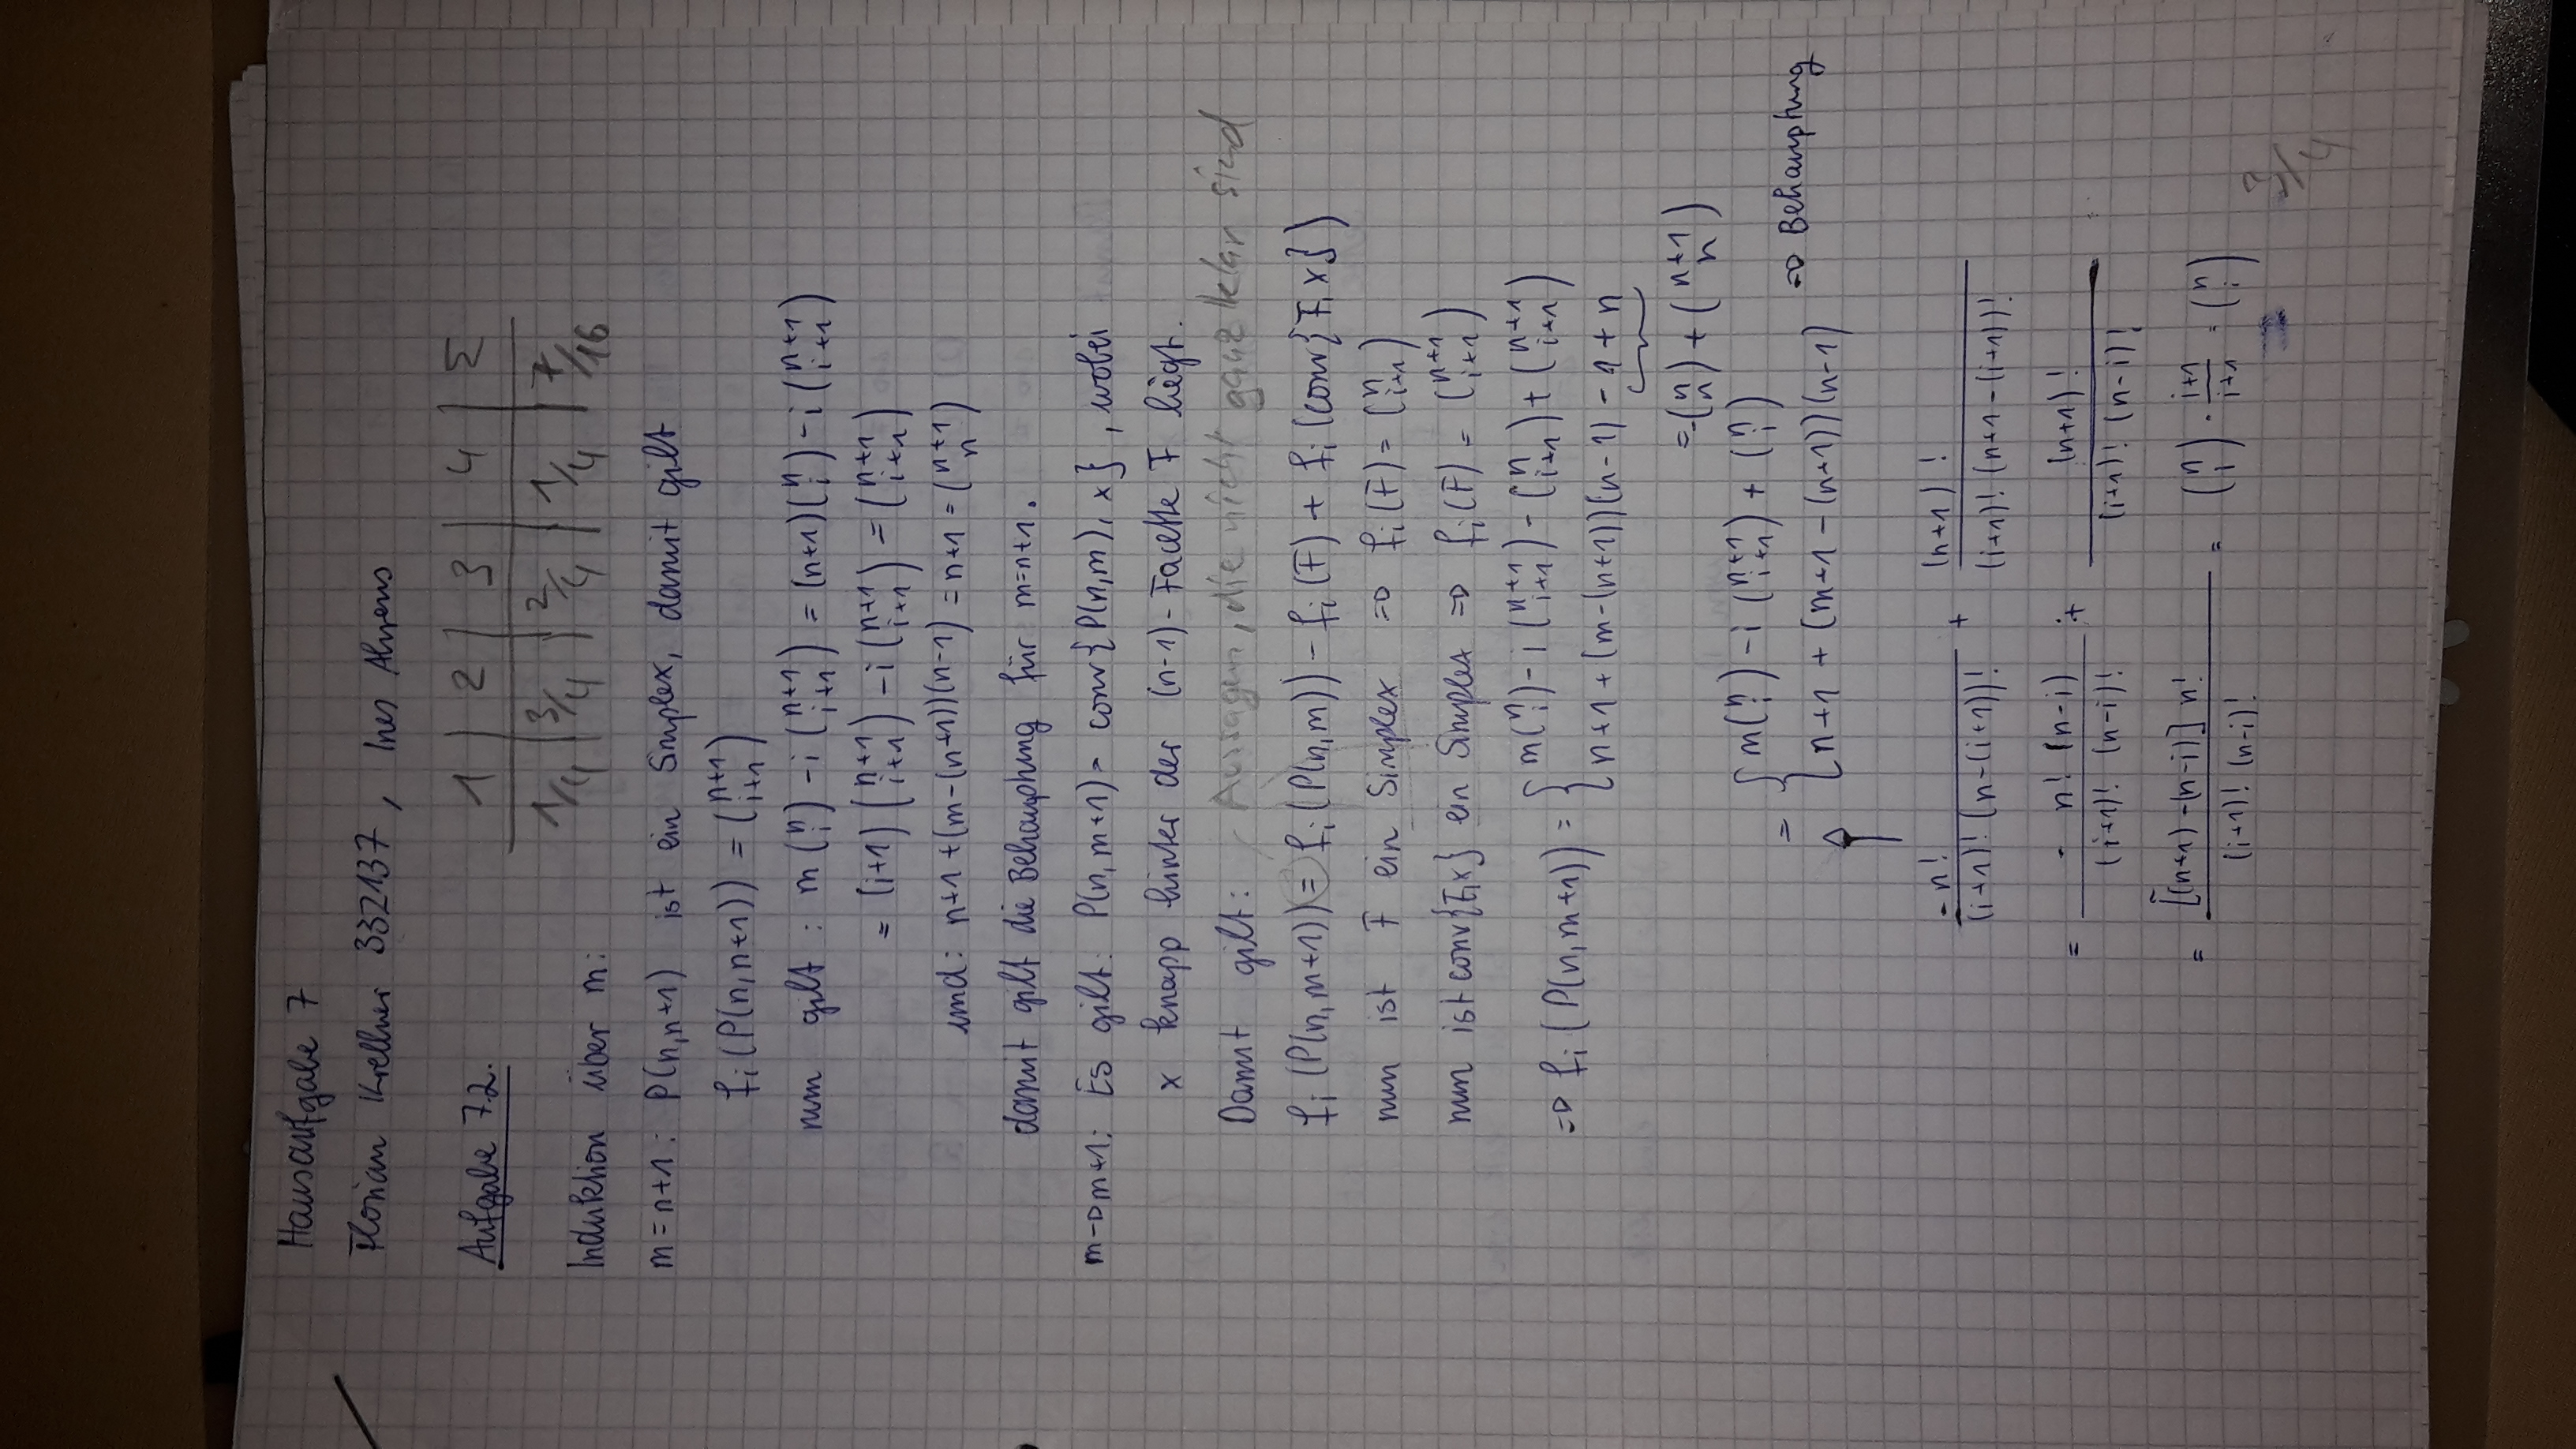 Hausaufgabe 7
Florian Krellner 332137, Ines Ahrens
Aufgabe 7.2.
1 | 2 | 3 | 4 | Σ
1/4 | 3/4 | 2/4 | 1/4 | 7/16
Induktion über m:
m=n+1: P(n,n+1) ist ein Simplex, damit gilt
f_i(P(n,n+1)) = (n+1 über i+1)
nun gilt: m(n über i) - i(n+1 über i+1) = (n+1)(n über i) - i(n+1 über i+1)
= (i+1)(n+1 über i+1) - i(n+1 über i+1) = (n+1 über i+1)
und: n+1+(m-(n+1))(n-1) = n+1 = (n+1 über n)
damit gilt die Behauptung für m=n+1.
m→m+1: Es gilt: P(n,m+1) = conv{P(n,m), x}, wobei
x knapp hinter der (n-1)-Facette F liegt.
Damit gilt: Aussagen, die nicht ganz klar sind
f_i(P(n,m+1)) = f_i(P(n,m)) - f_i(F) + f_i(conv{F,x})
nun ist F ein Simplex ⇒ f_i(F) = (n über i+1)
nun ist conv{F,x} ein Simplex ⇒ f_i(F) = (n+1 über i+1)
⇒ f_i(P(n,m+1)) = { m(n über i) - i(n+1 über i+1) - (n über i+1) + (n+1 über i+1)
n+1+(m-(n+1))(n-1) - 1 + n
= -(n über n) + (n+1 über n)
= { m(n über i) - i(n+1 über i+1) + (n über i)
n+1 + (m+1-(n+1))(n-1) ⇒ Behauptung
-n! / (i+1)! (n-(i+1))! + (n+1)! / (i+1)! (n+1-(i+1))!
= - n! (n-i) / (i+1)! (n-i)! + (n+1)! / (i+1)! (n-i)!
= [(n+1)-(n-i)] n! / (i+1)! (n-i)! = (n über i) · i+1/i+1 = (n über i)
3/4